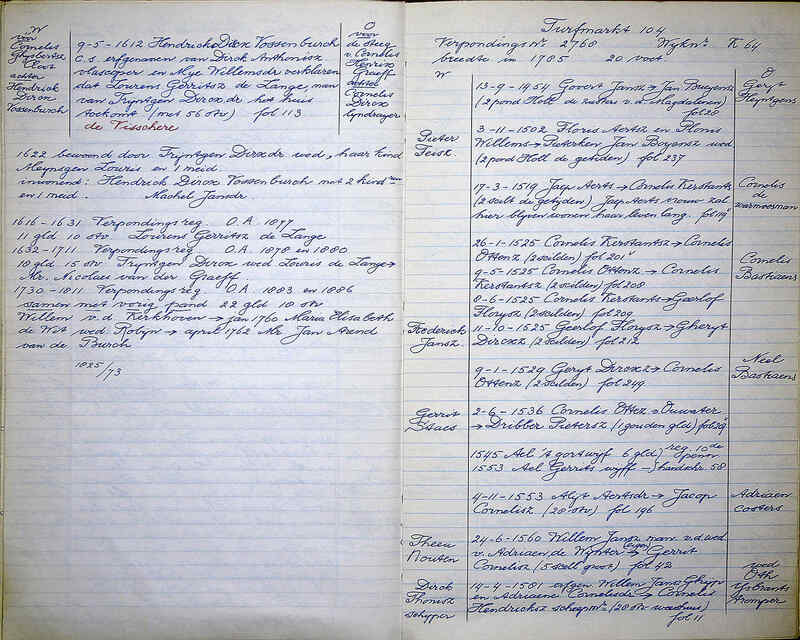 W
voor
Cornelis
Ghysbertsz
Cloot
achter
Hendrick
Dircx
Vossenburch
9-5-1612 Hendrick Dircx Vossenburch
c.s. erfgenamen van Dirck Anthonisz
vlascoper en Alye Willemsdr verklaren
dat Lourens Gerritsz de Lange, man
van Tryntgen Dircxdr het huis
toekomt (met 56 stv) fol 113
de Tisschere
O
voor
de steeg
v. Cornelis
Henrixz
Graeff
achter
Cornelis
Dircx
lyndrayer
1622 bewoond door Tryntgen Dircxdr wed, haar kind
Meynsgen Louris en 1 meid.
inwonend: Hendrick Dircx Vossenburch met 2 kinderen
en 1 meid. Machel Jansdr.
1616-1631 Verpondingsreg O.A. 1877
11 gld 10 stv Lourens Gerritsz de Lange
1632-1711 Verpondingsreg O.A. 1878 en 1880
18 gld 15 stv Tryntgen Dircx wed Louris de Lange →
Mr. Nicolaes van der Graeff
1730-1811 Verpondingsreg O.A. 1883 en 1886
samen met vorig pand 22 gld 18 stv
Willem v.d. Kerkhoven → jan 1760 Maria Elisabeth
de Wit wed Robyn → april 1762 Mr Jan Arend
van de Burch
1825/73
Turfmarkt 104
Verpondingsnr 2768 Wyknr. K 64
breedte in 1785 20 voet.
W
O
13-9-1454 Govert Jansz → Jan Bueyensz
(2 pond Holl de zusters v.d. Magdalenen)
fol 28
Geryt
Heyntgens
Pieter
Feisz.
3-11-1502 Floris Aertsz en Plonis
Willems → Pieterken Jan Boyensz wed
(2 pond Holl de getiden) fol 237
17-3-1519 Jacop Aerts → Cornelis Kerstants
(2 scilt de getyden) Jacop Aerts vrouw zal
hier blijven wonen haar leven lang. fol 119v
Cornelis
de
warmoesman
26-1-1525 Cornelis Kerstantsz → Cornelis
Ottenz (2 scilden) fol 201v
9-5-1525 Cornelis Ottenz → Cornelis
Kerstantsz (2 scilden) fol 208
8-6-1525 Cornelis Kerstants → Gaerlof
Floysz (2 scilden) fol 209
Cornelis
Bastiaens
Frederick
Jansz.
11-10-1525 Geerlof Floysz → Gheryt
Dircxz (2 scilden) fol 212
9-1-1529 Geryt Dircxz → Cornelis
Ottenz (2 scilden) fol 249
Neel
Bastiaens
Gerrit
Staes
2-6-1536 Cornelis Ottez v Ouwater
→ Dribber Pietersz (1 gouden gld) fol 29v
1545 Ael 't gortwyf 6 gld) reg. 10de
1553 Ael Gerrits wyff → penn
handschr. 58
4-11-1553 Alyt Aertsdr → Jacop
Cornelisz (28 stv) fol 196
Adriaen
costers
Theeu
Nouten
24-6-1560 Willem Jansz man v.d. wed
v. Adriaen de Wynter → Gerrit
Cornelisz (5 scell groot) fol 42
Dirck
Thonisz
schyper
14-4-1581 erfgen Willem Jansz Ghyp
en Adriaene Cornelisdr → Cornelis
Hendricksz schoym (28 stv weeshuis)
fol 11
wed
Oth
Ysbrants
tromper